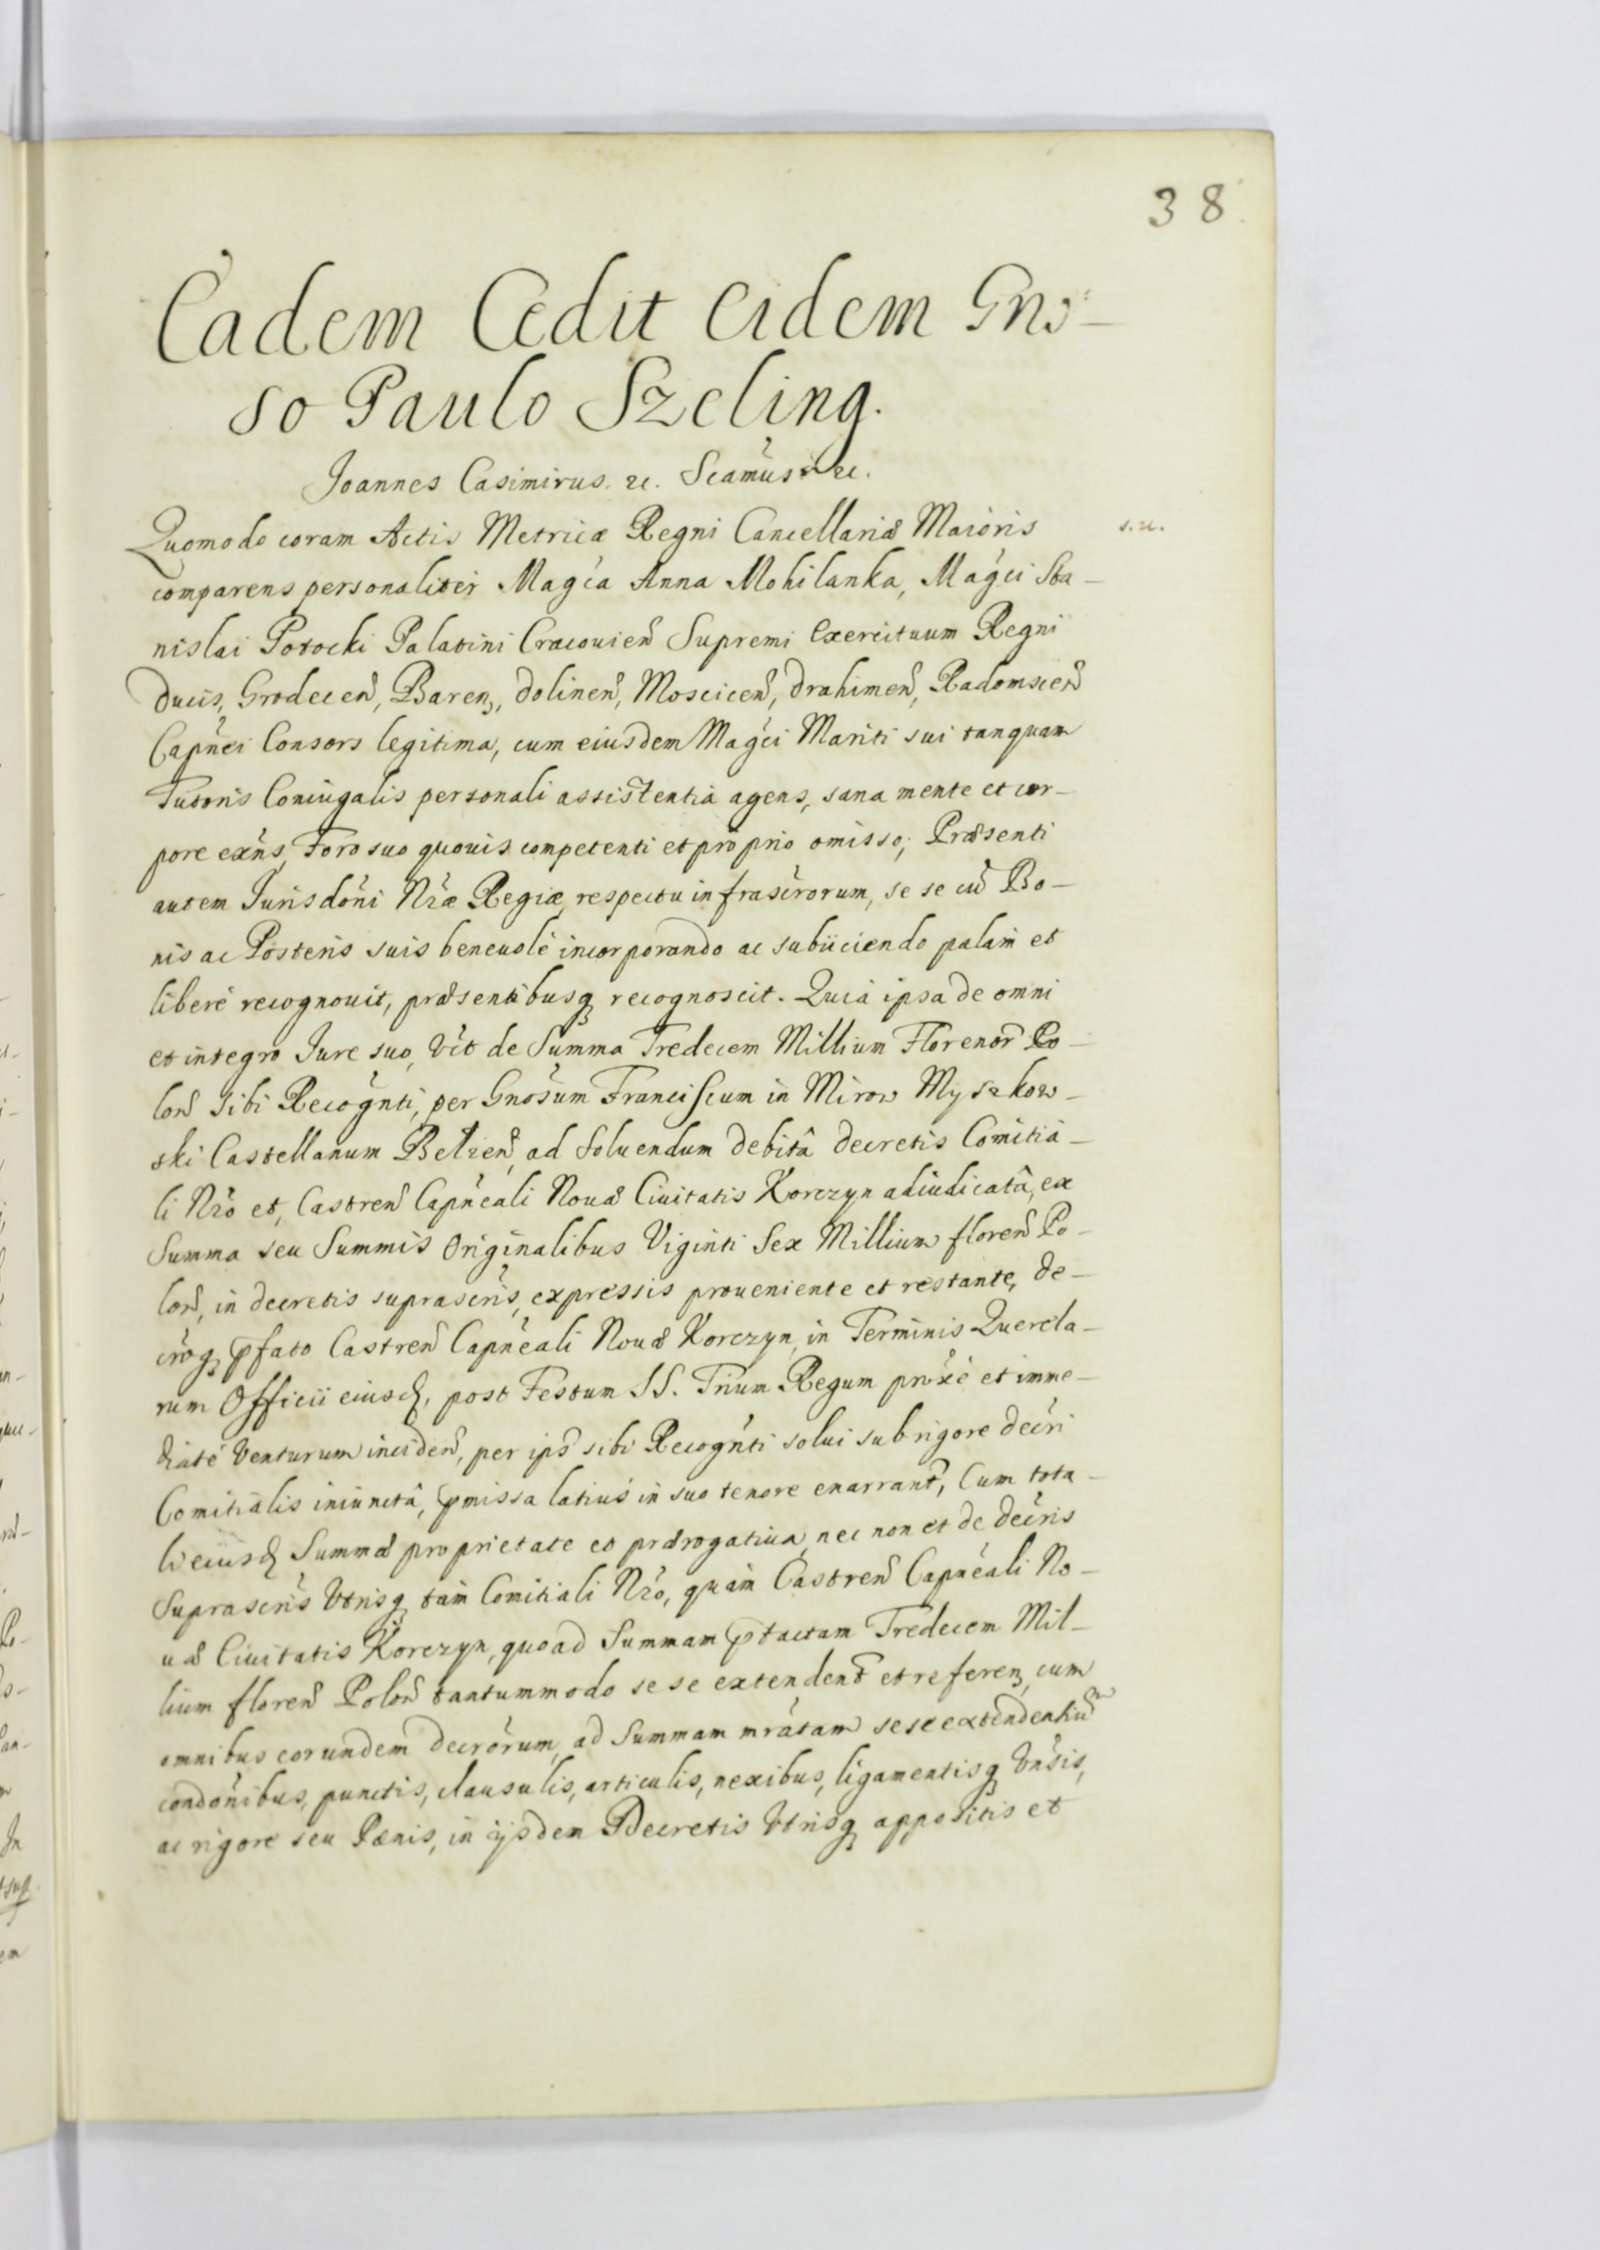 38
Eadem Cedit eidem Gno-
so Paulo Szeling.
Joannes Casimirus. &c. Seamus &c.
Quomodo coram Actis Metricæ Regni Cancellariæ Maioris
s. n.
comparens personaliter Magca Anna Mohilanka, Magci Sta-
nislai Potocki Palatini Cracouien Supremi Exercituum Regni
Ducis, Grodecen, Baren, Dolinen, Moscicen, Drahimen, Radomscen
Capnei Consors legitima, cum eiusdem Magci Mariti sui tanquam
Tutoris Coniugalis personali assistentia agens, sana mente et cor-
pore exns, Foro suo quouis competenti et proprio omisso; Præsenti
autem Jurisdoni Nræ Regiæ, respectu infrascrorum, se se cu Bo-
nis ac Posteris suis beneuolè incorporando ac subiiciendo palam et
liberè recognouit, præsentibusq recognoscit. Quia ipsa de omni
et integro Jure suo, vct de Summa Tredecem Millium Florenor Po-
lon sibi Recognti, per Gnosum Franciscum in Mirow Myszkow-
ski Castellanum Belzen, ad soluendum debitâ decretis Comitia-
li Nro et, Castren Capneali Nouæ Ciuitatis Korczyn adiudicatâ, ex
Summa seu Summis Originalibus Viginti Sex Millium floren Po-
lon, in decretis suprascris, expressis proueniente et restante, de-
croq pfato Castren Capneali Nouæ Korczyn, in Terminis Querela-
rum Officii eiusd, post Festum SS. Trium Regum proxè et imme-
diatè Venturum inciden, per ips sibi Recognti solui sub rigore decri
Comitialis iniunctâ, pmissa latius in suo tenore enarrant, Cum tota-
li eiusd Summæ proprietate et prærogatiua, nec non et de decris
Suprascris Vtrisq tam Comitiali Nro, quam Castren Capneali No-
uæ Ciuitatis Korczyn, quoad Summam ptactam Tredecem Mil-
lium floren Polon tantummodo se se extendent et referen, cum
omnibus eorundem decrorum, ad Summam mratam sese extendentiu
condonibus, punctis, clausulis, articulis, nexibus, ligamentisq Vnsis,
ac rigore seu Pænis, in ijsdem Decretis Vtrisq appositis et